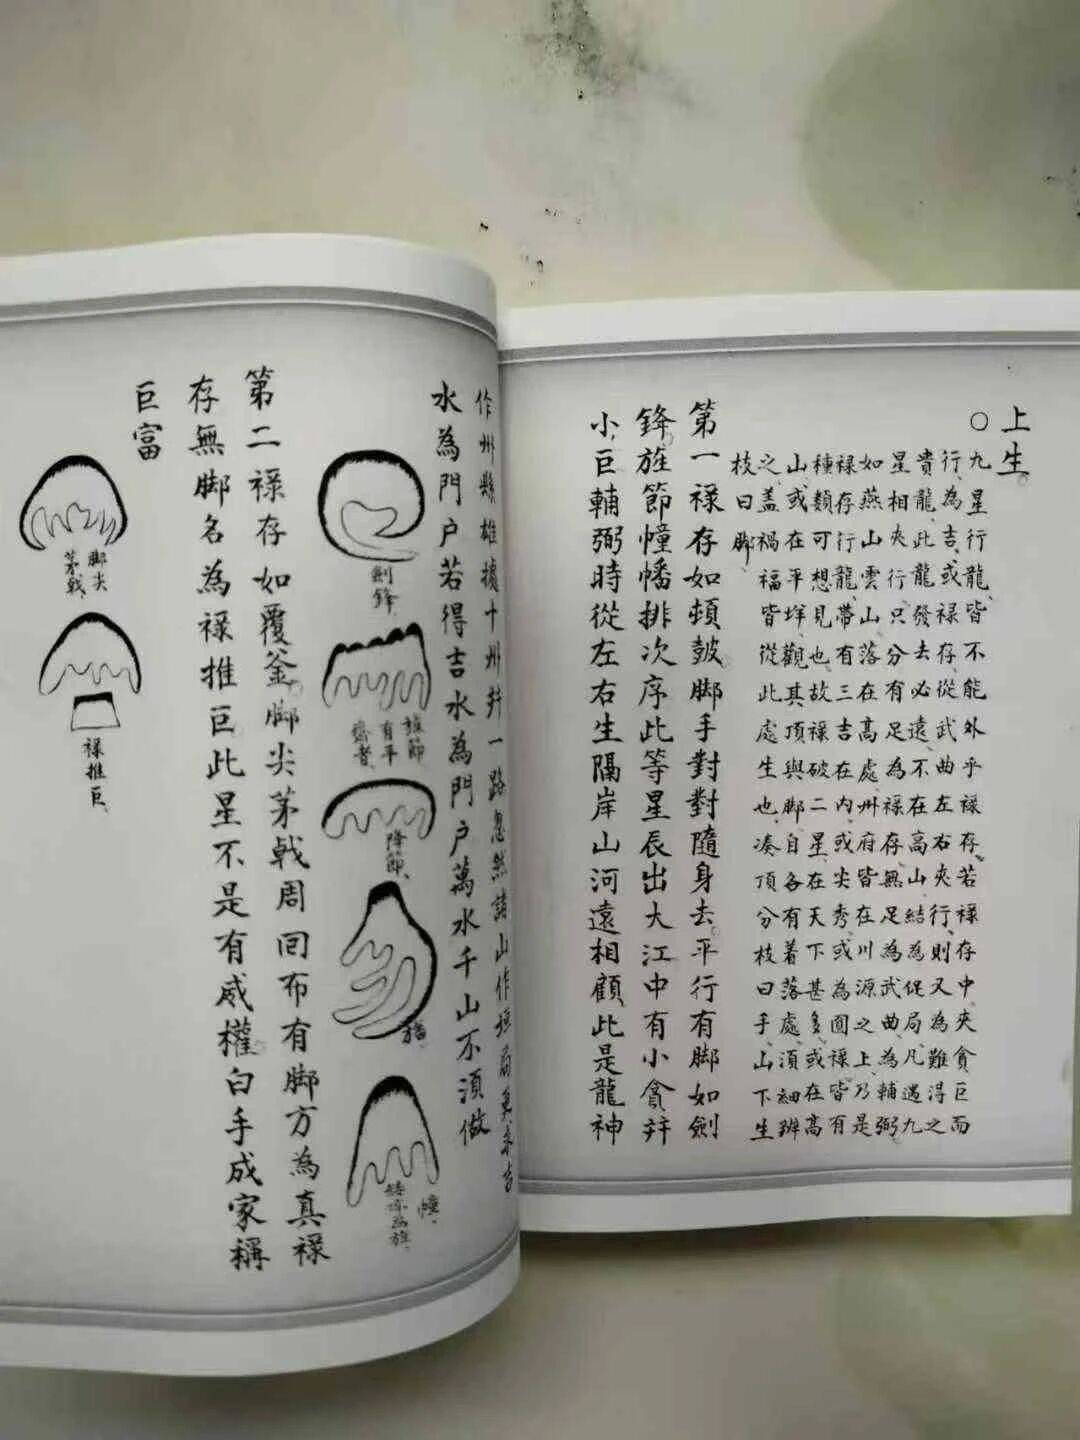 上生
○
九星行龍皆不能外乎祿存若祿存中夾貪巨而
行為吉或祿存從武曲左右夾行則又為難得之
貴龍此龍發去必遠不在高山結為促局凡遇九
星相夾行只分有足為祿存無足為武曲為輔弼
如燕山雲山落在高處州府皆在川源之上乃是
祿存行龍帶有三吉在內或尖秀或為圓祿皆有
種類可想見也故祿破二星在天下甚多或在高
山或在平垟觀其頂與脚自各有着落處須細辨
之蓋禍福皆從此處生也凑頂分枝曰手山下生
枝曰脚
第一祿存如頓皷脚手對對隨身去平行有脚如劍
鋒旌節幢幡排次序此等星辰出大江中有小貪并
小巨輔弼時從左右生隔岸山河遠相顧此是龍神
作州縣雄據十州并一路忽然諸山作垣局更求吉
水為門户若得吉水為門户萬水千山不須做
劍鋒
旌節
有平
齊者
降節
幡
幢
為旌
第二祿存如覆釜脚尖茅戟周回布有脚方為真祿
存無脚名為祿推巨此星不是有威權白手成家稱
巨富
脚尖
茅戟
祿推巨